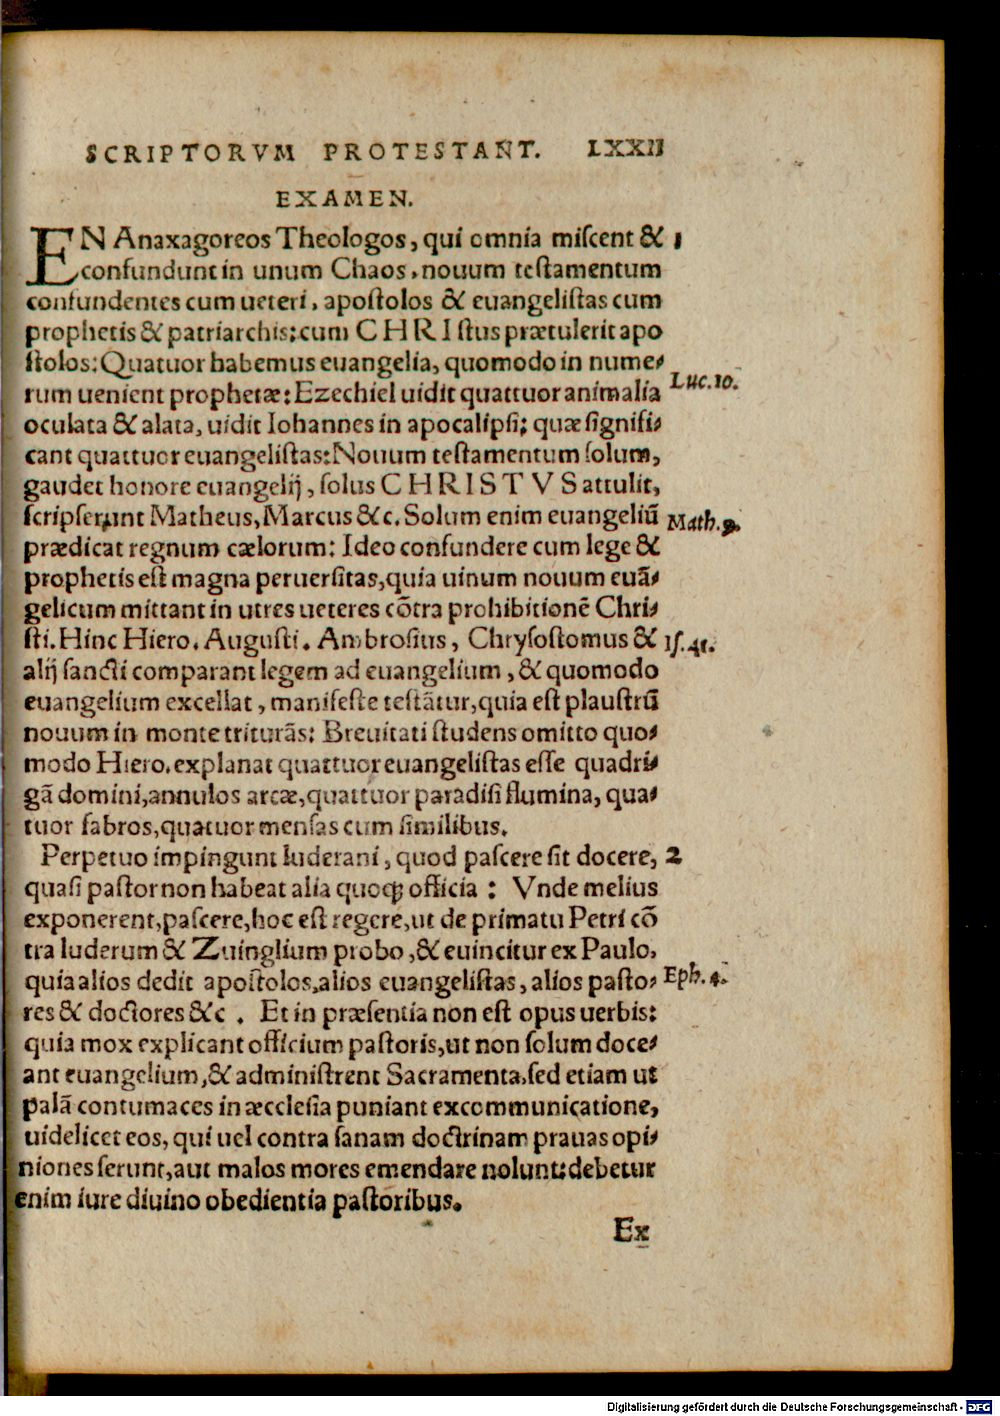 SCRIPTORVM PROTESTANT. LXXII
EXAMEN.
EN Anaxagoreos Theologos, qui omnia miſcent & 1
confundunt in unum Chaos, nouum teſtamentum
confundentes cum ueteri, apoſtolos & euangeliſtas cum
prophetis & patriarchis: cum CHRIſtus prætulerit apo
ſtolos: Quatuor habemus euangelia, quomodo in nume⸗
rum uenient prophetæ: Ezechiel uidit quattuor animalia Luc. 10.
oculata & alata, uidit Iohannes in apocalipſi; quæ ſignifi⸗
cant quattuor euangeliſtas: Nouum teſtamentum ſolum,
gaudet honore euangelij, ſolus CHRISTVS attulit,
ſcripſerunt Matheus, Marcus &c. Solum enim euangeliū Math. 9.
prædicat regnum cælorum: Ideo confundere cum lege &
prophetis eſt magna peruerſitas, quia uinum nouum euā⸗
gelicum mittant in utres ueteres cōtra prohibitionē Chri⸗
ſti. Hinc Hiero. Auguſti. Ambroſius, Chryſoſtomus & Iſ. 41.
alij ſancti comparant legem ad euangelium, & quomodo
euangelium excellat, manifeſte teſtātur, quia eſt plauſtrū
nouum in monte triturās: Breuitati ſtudens omitto quo⸗
modo Hiero. explanat quattuor euangeliſtas eſſe quadri⸗
gā domini, annulos arcæ, quattuor paradiſi flumina, qua⸗
tuor fabros, quatuor menſas cum ſimilibus.
Perpetuo impingunt luderani, quod paſcere ſit docere, 2
quaſi paſtor non habeat alia quoqꝫ officia: Vnde melius
exponerent, paſcere, hoc eſt regere, ut de primatu Petri cō
tra luderum & Zuinglium probo, & euincitur ex Paulo,
quia alios dedit apoſtolos, alios euangeliſtas, alios paſto⸗ Eph. 4.
res & doctores &c. Et in præſentia non eſt opus uerbis:
quia mox explicant officium paſtoris, ut non ſolum doce⸗
ant euangelium, & adminiſtrent Sacramenta, ſed etiam ut
palā contumaces in æccleſia puniant excommunicatione,
uidelicet eos, qui uel contra ſanam doctrinam prauas opi⸗
niones ſerunt, aut malos mores emendare nolunt: debetur
enim iure diuino obedientia paſtoribus.
Ex
Digitalisierung gefördert durch die Deutsche Forschungsgemeinschaft - DFG